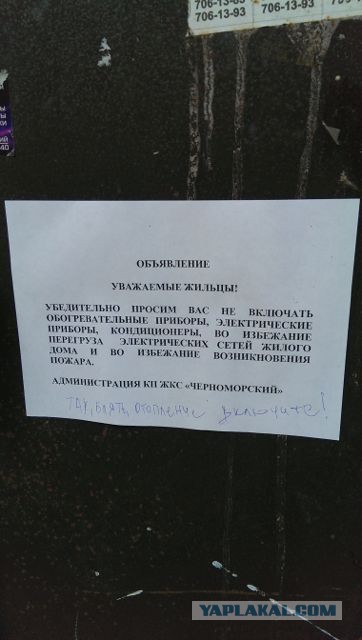 706-13-93
706-13-93
706-13-93
706-13-93
40
ОБЪЯВЛЕНИЕ
УВАЖАЕМЫЕ ЖИЛЬЦЫ!
УБЕДИТЕЛЬНО ПРОСИМ ВАС НЕ ВКЛЮЧАТЬ
ОБОГРЕВАТЕЛЬНЫЕ ПРИБОРЫ, ЭЛЕКТРИЧЕСКИЕ
ПРИБОРЫ, КОНДИЦИОНЕРЫ, ВО ИЗБЕЖАНИЕ
ПЕРЕГРУЗА ЭЛЕКТРИЧЕСКИХ СЕТЕЙ ЖИЛОГО
ДОМА И ВО ИЗБЕЖАНИЕ ВОЗНИКНОВЕНИЯ
ПОЖАРА.
АДМИНИСТРАЦИЯ КП ЖКС «ЧЕРНОМОРСКИЙ»
так, блять, отопление включите!
YAPLAKAL.COM